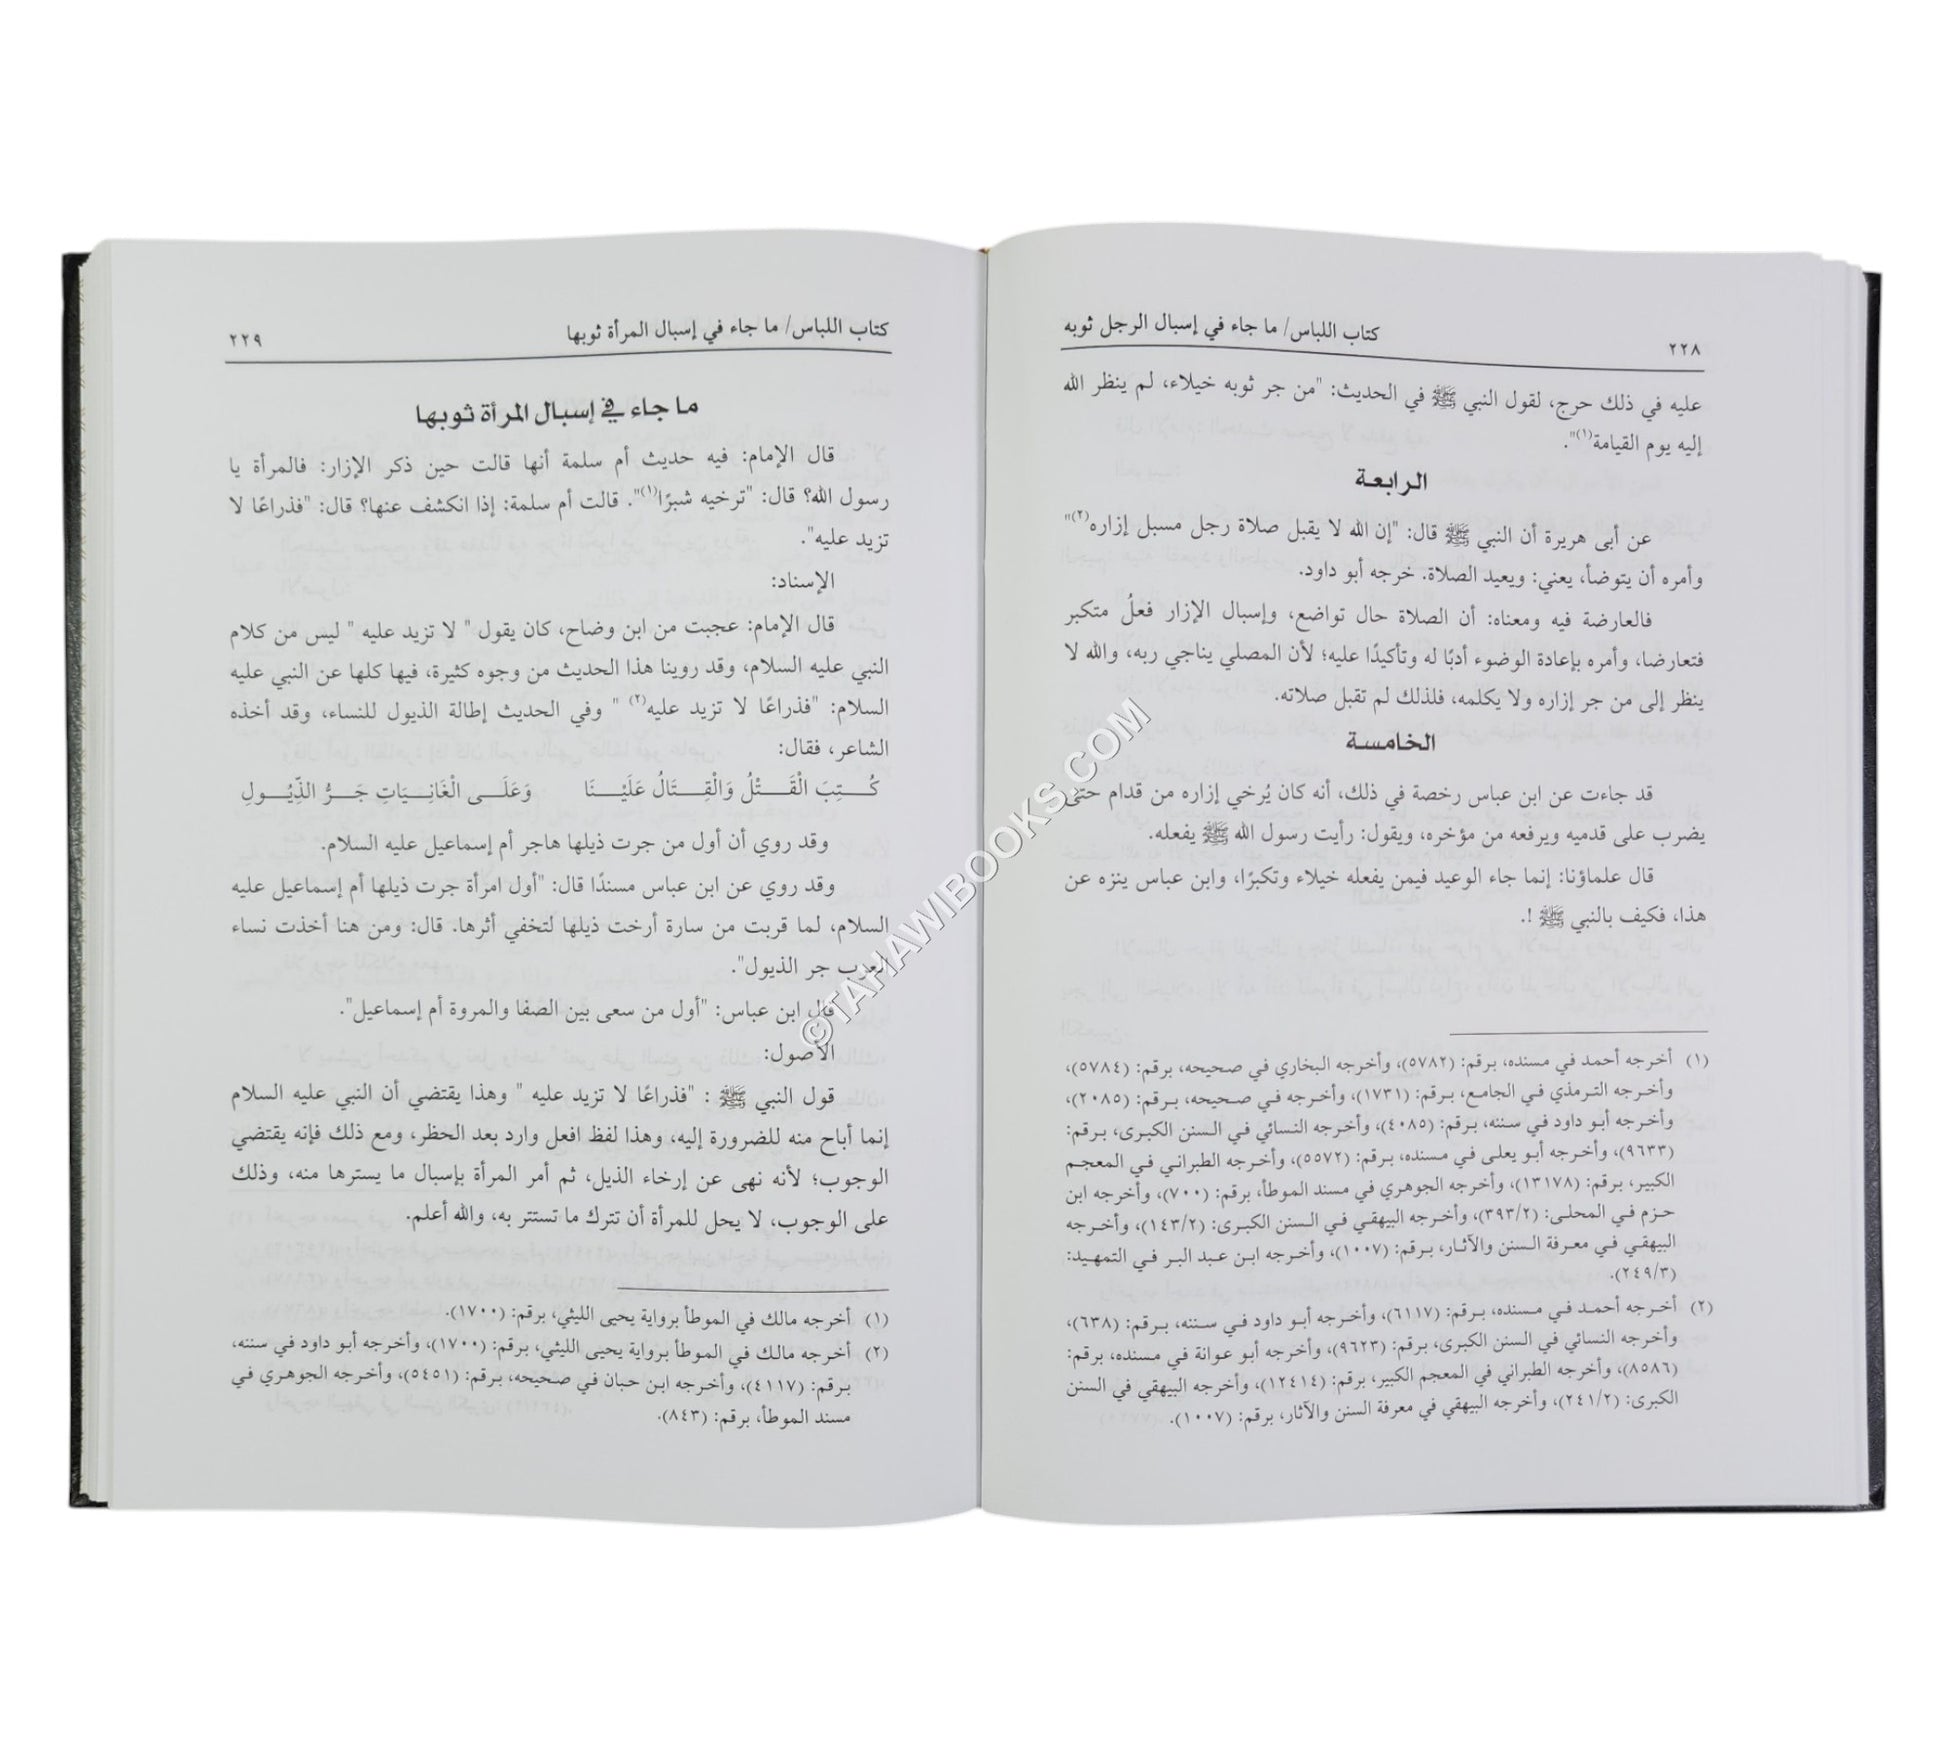 ٢٢٨
كتاب اللباس/ ما جاء في إسبال الرجل ثوبه
عليه في ذلك حرج، لقول النبي ﷺ في الحديث: "من جر ثوبه خيلاء، لم ينظر الله
إليه يوم القيامة(١)".
الرابعة
عن أبى هريرة أن النبي ﷺ قال: "إن الله لا يقبل صلاة رجل مسبل إزاره(٢)"
وأمره أن يتوضأ، يعني: ويعيد الصلاة. خرجه أبو داود.
فالعارضة فيه ومعناه: أن الصلاة حال تواضع، وإسبال الإزار فعلُ متكبر
فتعارضا، وأمره بإعادة الوضوء أدبًا له وتأكيدًا عليه؛ لأن المصلي يناجي ربه، والله لا
ينظر إلى من جر إزاره ولا يكلمه، فلذلك لم تقبل صلاته.
الخامسة
قد جاءت عن ابن عباس رخصة في ذلك، أنه كان يُرخي إزاره من قدام حتى
يضرب على قدميه ويرفعه من مؤخره، ويقول: رأيت رسول الله ﷺ يفعله.
قال علماؤنا: إنما جاء الوعيد فيمن يفعله خيلاء وتكبرًا، وابن عباس ينزه عن
هذا، فكيف بالنبي ﷺ !.
(١) أخرجه أحمد في مسنده، برقم: (٥٧٨٢)، وأخرجه البخاري في صحيحه، برقم: (٥٧٨٤)،
وأخرجه الترمذي في الجامع، برقم: (١٧٣١)، وأخرجه في صحيحه، برقم: (٢٠٨٥)،
وأخرجه أبو داود في سننه، برقم: (٤٠٨٥)، وأخرجه النسائي في السنن الكبرى، برقم:
(٩٦٣٣)، وأخرجه أبو يعلى في مسنده، برقم: (٥٥٧٢)، وأخرجه الطبراني في المعجم
الكبير، برقم: (١٣١٧٨)، وأخرجه الجوهري في مسند الموطأ، برقم: (٧٠٠)، وأخرجه ابن
حزم في المحلى: (٣٩٣/٢)، وأخرجه البيهقي في السنن الكبرى: (١٤٣/٢)، وأخرجه
البيهقي في معرفة السنن والآثار، برقم: (١٠٠٧)، وأخرجه ابن عبد البر في التمهيد:
(٢٤٩/٣).
(٢) أخرجه أحمد في مسنده، برقم: (٦١١٧)، وأخرجه أبو داود في سننه، برقم: (٦٣٨)،
وأخرجه النسائي في السنن الكبرى، برقم: (٩٦٢٣)، وأخرجه أبو عوانة في مسنده، برقم:
(٨٥٨٦)، وأخرجه الطبراني في المعجم الكبير، برقم: (١٢٤١٤)، وأخرجه البيهقي في السنن
الكبرى: (٢٤١/٢)، وأخرجه البيهقي في معرفة السنن والآثار، برقم: (١٠٠٧).
كتاب اللباس/ ما جاء في إسبال المرأة ثوبها
٢٢٩
ما جاء في إسبال المرأة ثوبها
قال الإمام: فيه حديث أم سلمة أنها قالت حين ذكر الإزار: فالمرأة يا
رسول الله؟ قال: "ترخيه شبرًا(١)". قالت أم سلمة: إذا انكشف عنها؟ قال: "فذراعًا لا
تزيد عليه".
الإسناد:
قال الإمام: عجبت من ابن وضاح، كان يقول " لا تزيد عليه " ليس من كلام
النبي عليه السلام، وقد روينا هذا الحديث من وجوه كثيرة، فيها كلها عن النبي عليه
السلام: "فذراعًا لا تزيد عليه(٢) " وفي الحديث إطالة الذيول للنساء، وقد أخذه
الشاعر، فقال:
كُتِبَ الْقَتْلُ وَالْقِتَالُ عَلَيْنَا وَعَلَى الْغَانِيَاتِ جَرُّ الذِّيُولِ
وقد روي أن أول من جرت ذيلها هاجر أم إسماعيل عليه السلام.
وقد روي عن ابن عباس مسندًا قال: "أول امرأة جرت ذيلها أم إسماعيل عليه
السلام، لما قربت من سارة أرخت ذيلها لتخفي أثرها. قال: ومن هنا أخذت نساء
العرب جر الذيول".
قال ابن عباس: "أول من سعى بين الصفا والمروة أم إسماعيل".
الأصول:
قول النبي ﷺ : "فذراعًا لا تزيد عليه " وهذا يقتضي أن النبي عليه السلام
إنما أباح منه للضرورة إليه، وهذا لفظ افعل وارد بعد الحظر، ومع ذلك فإنه يقتضي
الوجوب؛ لأنه نهى عن إرخاء الذيل، ثم أمر المرأة بإسبال ما يسترها منه، وذلك
على الوجوب، لا يحل للمرأة أن تترك ما تستتر به، والله أعلم.
(١) أخرجه مالك في الموطأ برواية يحيى الليثي، برقم: (١٧٠٠).
(٢) أخرجه مالك في الموطأ برواية يحيى الليثي، برقم: (١٧٠٠)، وأخرجه أبو داود في سننه،
برقم: (٤١١٧)، وأخرجه ابن حبان في صحيحه، برقم: (٥٤٥١)، وأخرجه الجوهري في
مسند الموطأ، برقم: (٨٤٣).
©TAHAWIBOOKS.COM